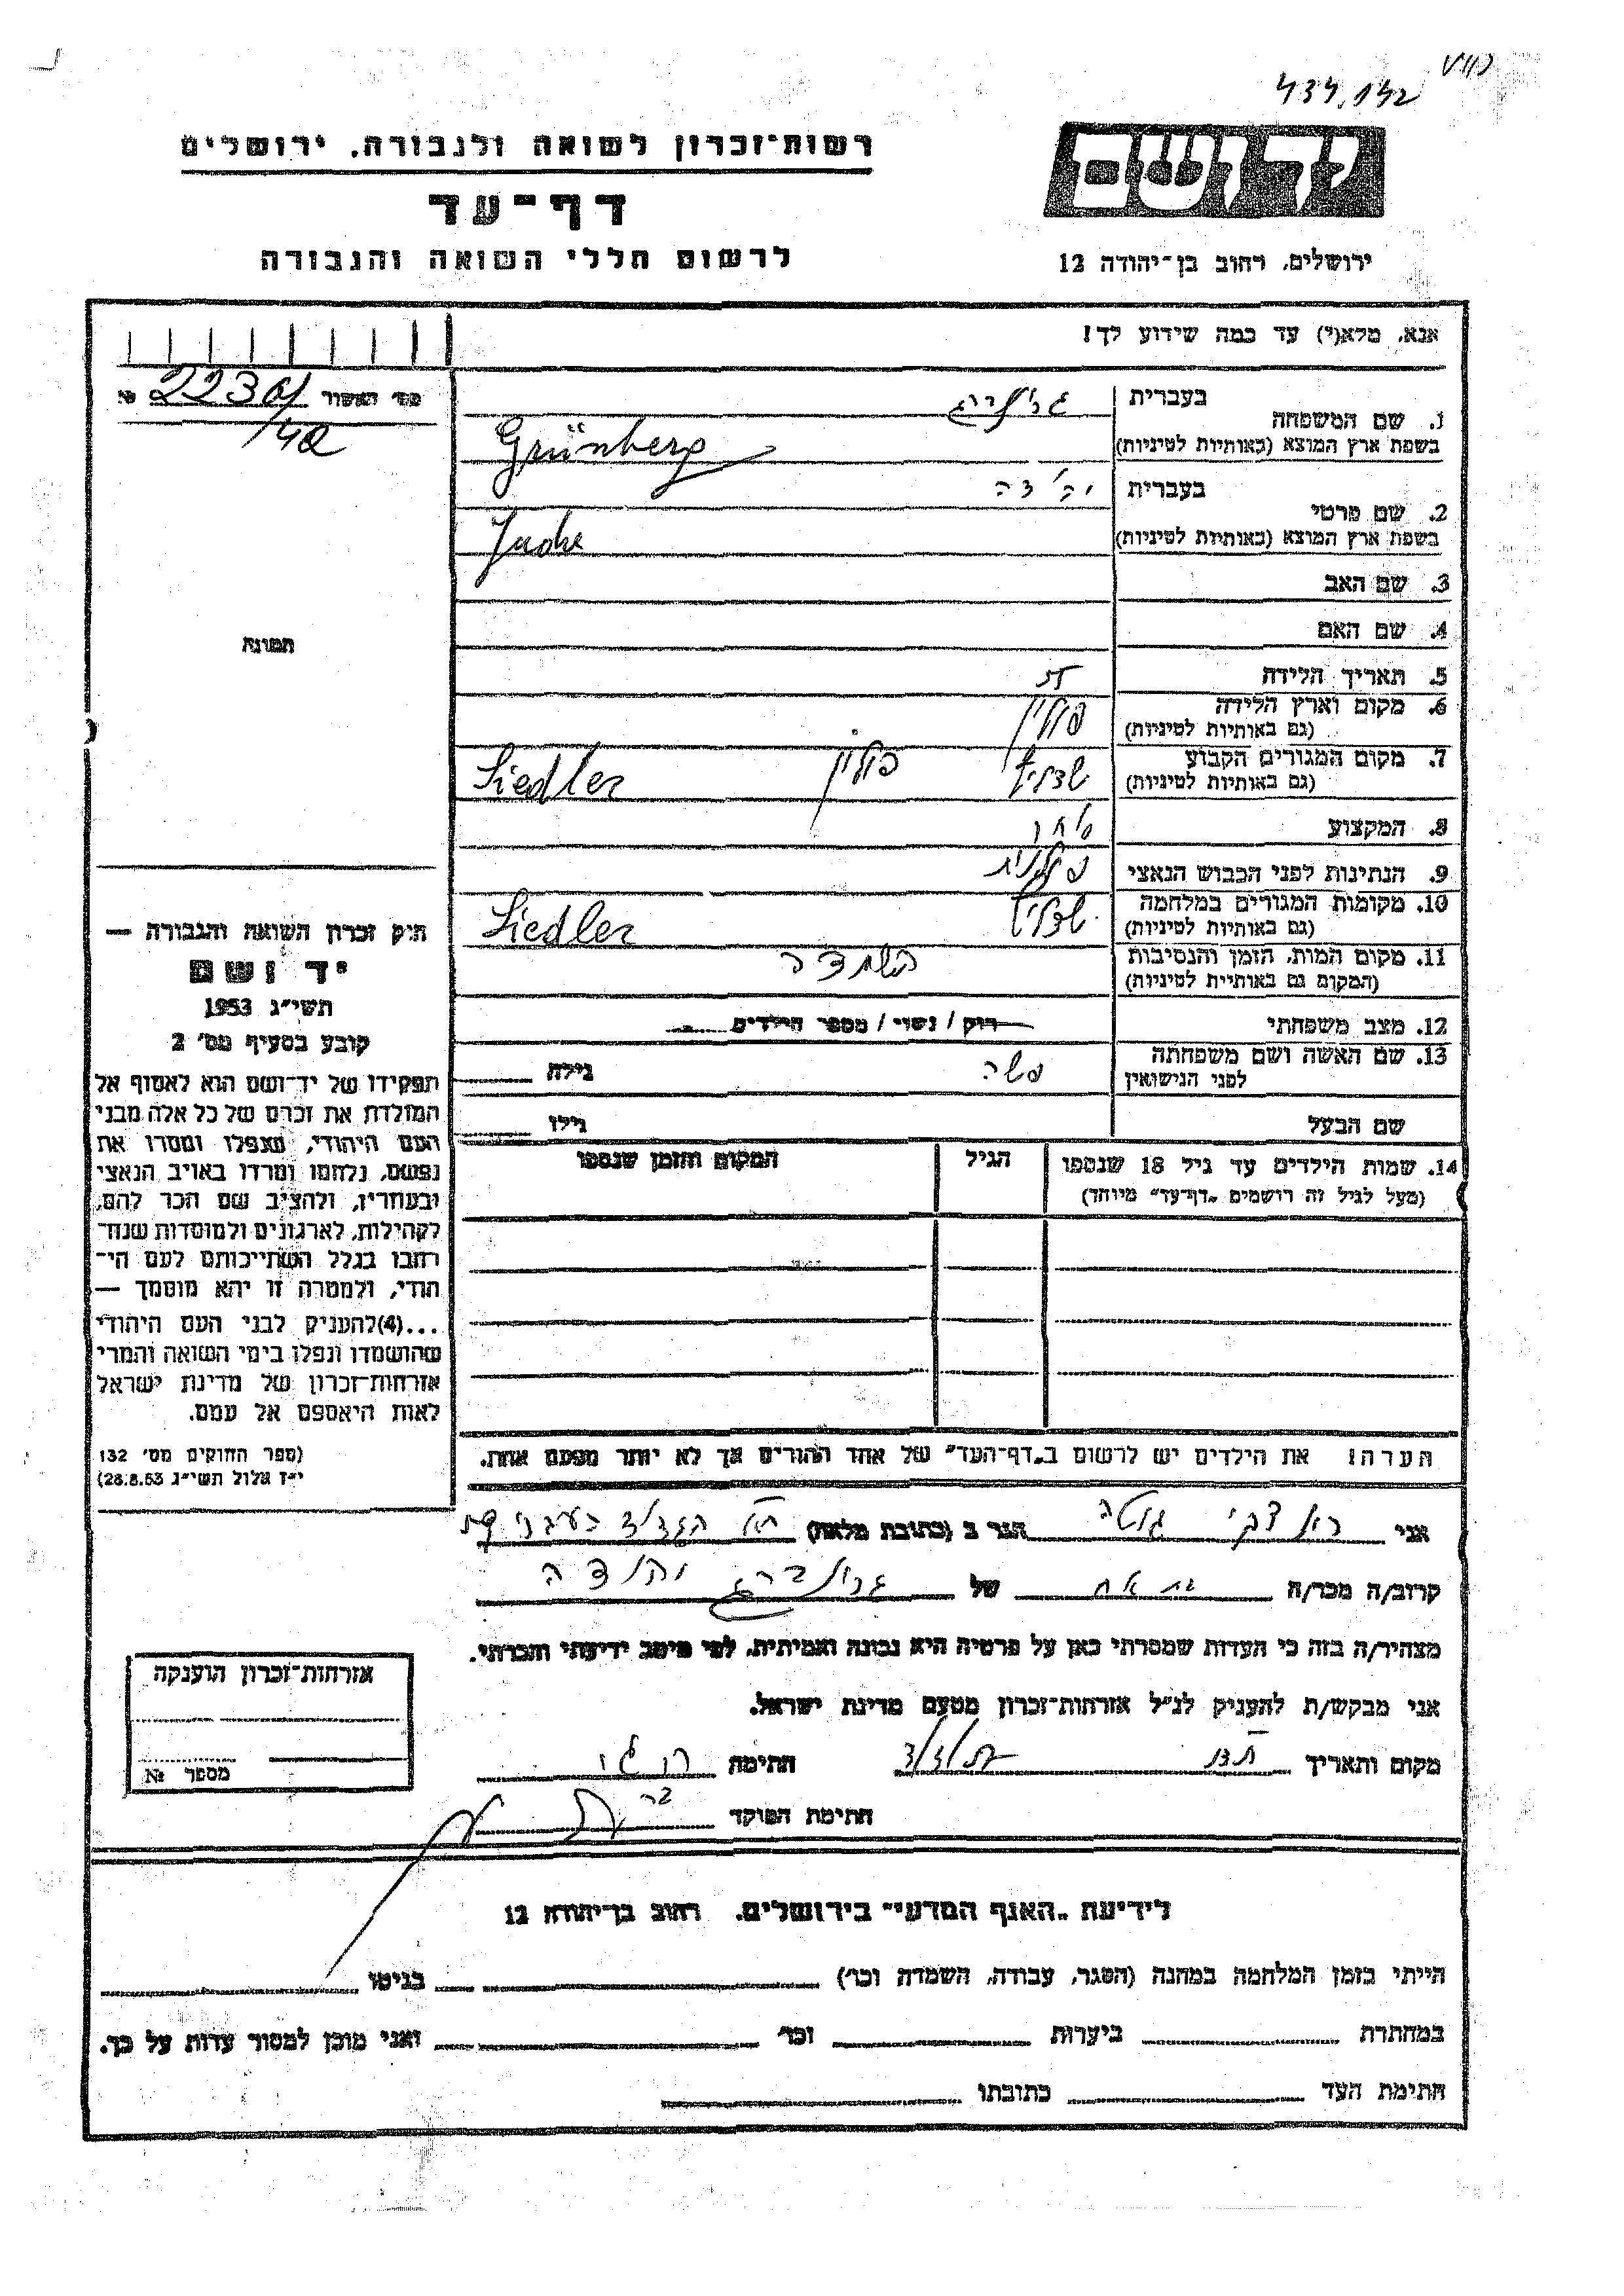 434.142
רשות־זכרון לשואה ולגבורה, ירושלים
דף־עד
לרשום חללי השואה והגבורה
יד ושם
ירושלים, רחוב בן־יהודה 12
אנא, מלא(י) עד כמה שידוע לך!
1. שם המשפחה
בעברית
בשפת ארץ המוצא (באותיות לטיניות) Grünberg
2. שם פרטי
בעברית יהודה
בשפת ארץ המוצא (באותיות לטיניות)
3. שם האב
4. שם האם
5. תאריך הלידה
6. מקום וארץ הלידה פולין
(גם באותיות לטיניות)
7. מקום המגורים הקבוע פולין Siedler
(גם באותיות לטיניות)
8. המקצוע סוחר
9. הנתינות לפני הכבוש הנאצי פולנית
10. מקומות המגורים במלחמה Siedler
(גם באותיות לטיניות)
11. מקום המות, הזמן והנסיבות השמדה
(המקום גם באותיות לטיניות)
12. מצב משפחתי רוק / נשוי / מספר הילדים
13. שם האשה ושם משפחתה גילה
לפני הנישואין
שם הבעל גילו
14. שמות הילדים עד גיל 18 שנספו הגיל המקום והזמן שנספו
(מעל לגיל זה רושמים "דף־עד" מיוחד)
הערה! את הילדים יש לרשום ב"דף־העד" של אחד ההורים אך לא יותר מפעם אחת.
מס' האשור №
תמונה
חוק זכרון השואה והגבורה —
יד ושם
תשי"ג 1953
קובע בסעיף מס' 2
תפקידו של יד־ושם הוא לאסוף אל
המולדת את זכרם של כל אלה מבני
העם היהודי, שנפלו ומסרו את
נפשם, נלחמו ומרדו באויב הנאצי
ובעוזריו, ולהציב שם וזכר להם,
לקהילות, לארגונים ולמוסדות שנח־
רבו בגלל השתייכותם לעם הי־
הודי, ולמטרה זו יהא מוסמך —
...(4)להעניק לבני העם היהודי
שהושמדו ונפלו בימי השואה והמרי
אזרחות־זכרון של מדינת ישראל
לאות היאספם אל עמם.
(ספר החוקים מס' 132
י"ז אלול תשי"ג 28.8.53)
אני הגר ב (כתובת מלאה)
קרוב/ה מכר/ה של גרינברג יהודה
מצהיר/ה בזה כי העדות שמסרתי כאן על פרטיה היא נכונה ואמיתית, לפי מיטב ידיעתי והכרתי.
אני מבקש/ת להעניק לנ"ל אזרחות־זכרון מטעם מדינת ישראל.
מקום ותאריך חתימה
חתימת הפוקד
אזרחות־זכרון הוענקה
מספר №
לידיעת "האגף המדעי" בירושלים, רחוב בן־יהודה 12
הייתי בזמן המלחמה במחנה (הסגר, עבודה, השמדה וכו') בגיטו
במחתרת ביערות וכו' ואני מוכן למסור עדות על כך.
חתימת העד כתובתו